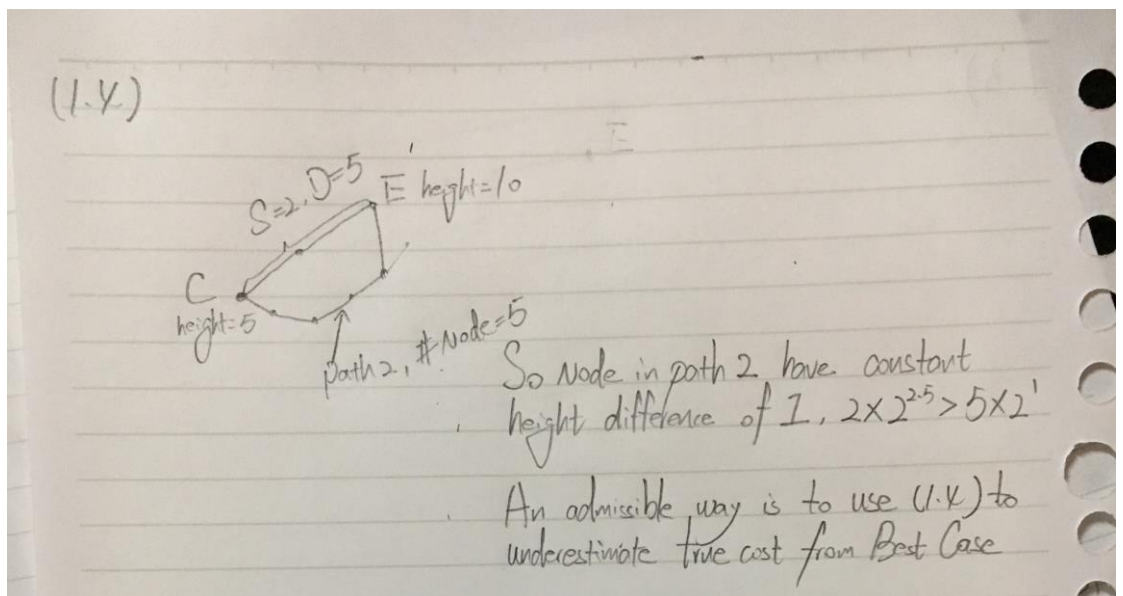 (1.4.)
S=2, D=5
E height=10
C
height=5
path2, #Node=5
So Node in path 2 have constant
height difference of 1, 2×2^2.5 > 5×2^1
An admissible way is to use (1.4.) to
underestimate true cost from Best Case